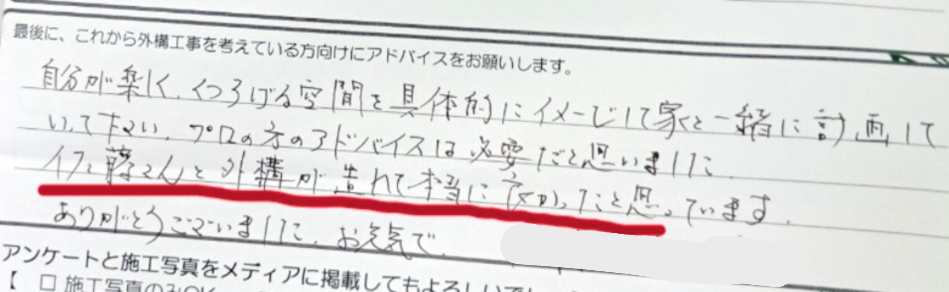 最後に、これから外構工事を考えている方向けにアドバイスをお願いします。
自分が楽しく、くつろげる空間を具体的にイメージして家と一緒に計画して
いって下さい。プロの方のアドバイスは必要だと思いました。
藤さんと外構が造れて本当に良かったと思っています。
ありがとうございました。お元気で。
アンケートと施工写真をメディアに掲載してもよろしいでし
【 □ 施工写真のみOK